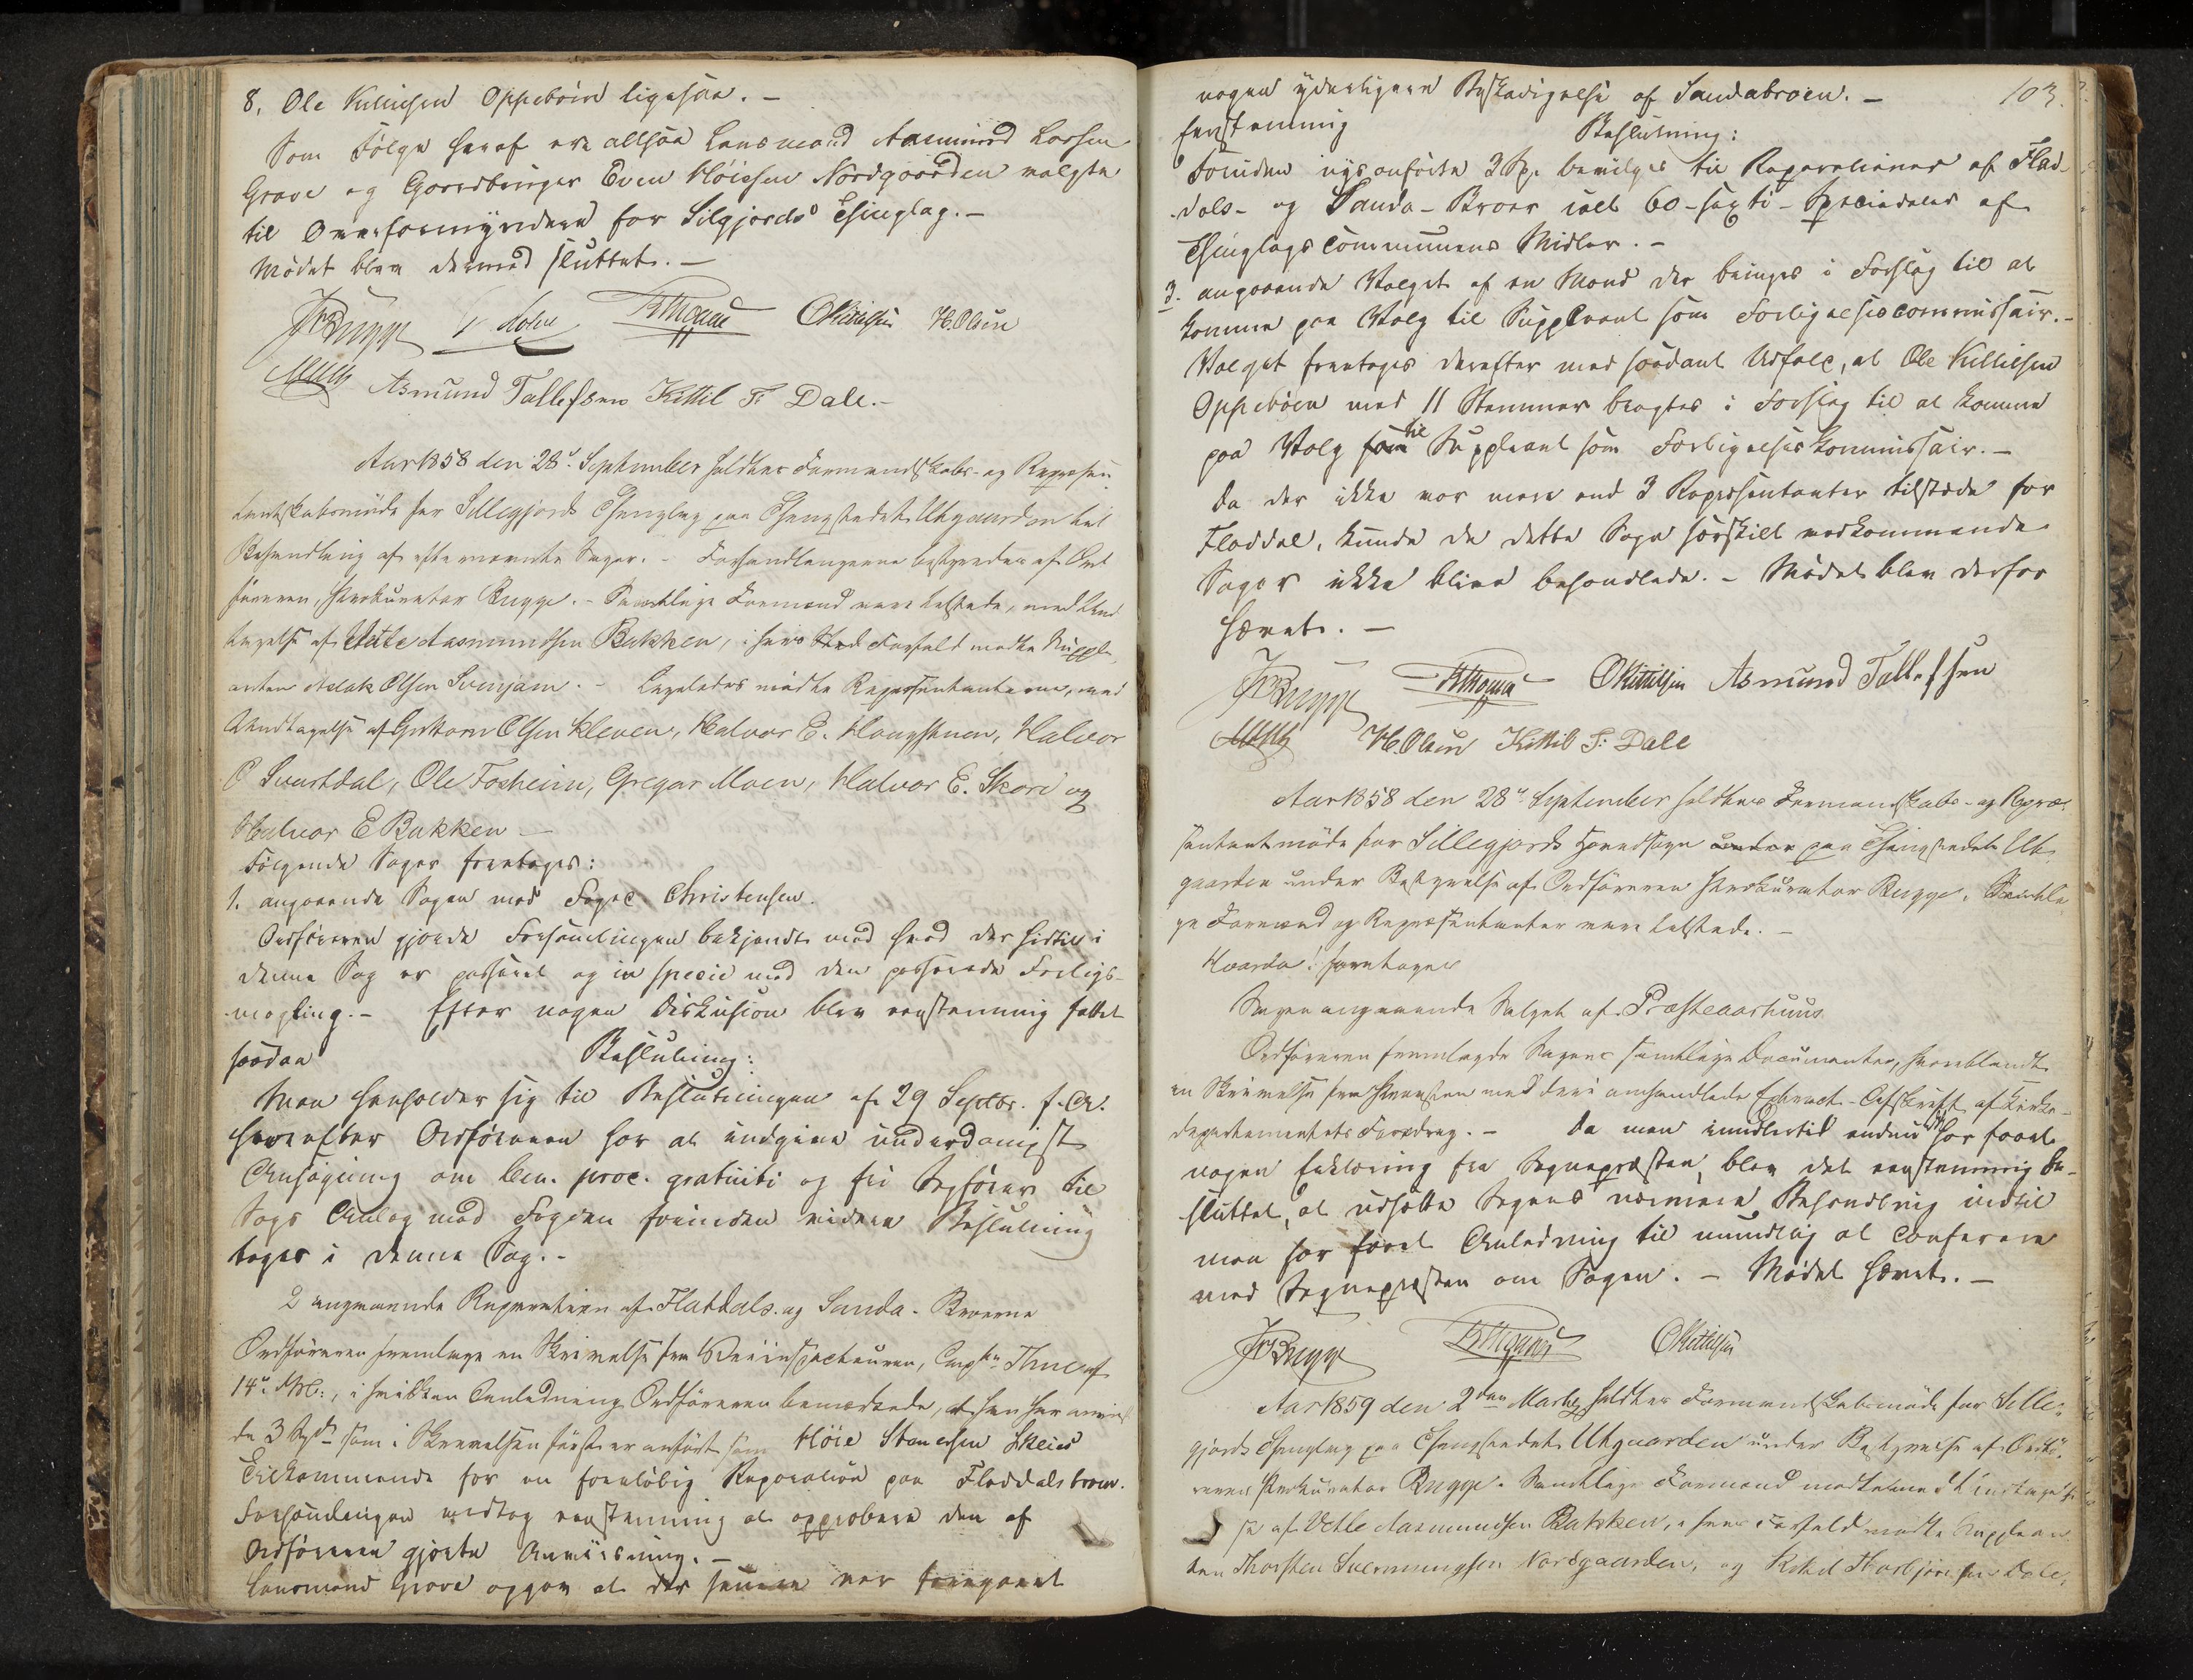 8. Ole Killiesen Oppeböen ligesaa. –
Som Følge heraf ere altsaa Lensmand Aasmund Larsen
Grave og Gaardbruger Even Høiesen Nordgaarden valgte
til Overformyndere for Silgjords Thinglag. –
Mødet blev dermed sluttet. –
JBugge OKittilsen H.Olsen
Asmund Tallefsen Kittil T: Dale. –
Aar 1858 den 28de September holdtes Formandskabs- og Repræsen
tantskabsmøde for Sillegjords Thinglag paa Thingstedet Utgaarden til
Behandling af efternævnte Sager. – Forhandlingerne bestyredes af Ord
føreren, Prokurator Bugge. – Samtlige Formænd vare tilstede, med Und
tagelse af Vetle Aasmundsen Bakken, i hvis Sted Forfald mødte Supple
anten Aslak Olsen Svenjam. – Ligeledes mødte Repræsentanterne, med
Undtagelse af Guttorm Olsen Kleven, Halvor E. Haugstuen, Halvor
O Svartdal, Ole Fosheim, Gregar Moen, Halvor E. Skori og
Halvor E Bakken –
Følgende Sager foretoges:
1. angaaende Sagen mod Foged Christensen.
Ordføreren gjorde Forsamlingen bekjendt med hvad der hidtil i
denne Sag er passeret og in specie med den passerede Forligs-
mægling. – Efter nogen Diskusion blev eenstemmig fattet
saadan Beslutning:
Man henholder sig til Beslutningen af 29 Septbr. f. A.
hvorefter Ordføreren har at indgive underdanigst
Ansøgning om ben. proc. gratuiti og fri Sagfører til
Sags Anlæg mod Fogden forinden videre Beslutning
tages i denne Sag. –
2 angaaende Reparation af Flatdals- og Sanda-Broerne
Ordføreren fremlagde en Skrivelse fra Veiinspecteuren, Captn Thue af
14de d.M., i hvilken Anledning Ordføreren bemærkede, at han har anviist
de 3 Spd. som i Skrivelsen først er anført som Høie Stenersen Skeies
Tilkommende for en foreløbig Reparation paa Fladdalsbroen.
Forsamlingen vedtog eenstemmig at approbere den af
Ordføreren gjorte Anviisning. –
Lensmand Grave opgav at der senere var foregaaet
103.
nogen yderligere Beskadigelse af Sandabroen. –
Eenstemmig Beslutning:
Foruden nys anførte 3 Sp. bevilges til Reparationer af Flad-
dals- og Sanda-Broer ialt 60 - sexti - Speciedaler af
Thinglags Communens Midler. –
3. angaaende Valget af en Mand der bringes i Forslag til at
komme paa Valg til Suppleant som Forligelsescommissair. –
Valget foretoges derefter med saadant Udfald, at Ole Killiesen
Oppeböen med 11 Stemmer bragtes i Forslag til at komme
paa Valg som til Suppleant som Forligelseskommissair. –
Da der ikke var mere end 3 Repræsentanter tilstede for
Fladdal, kunde de dette Sogn særskilt vedkommende
Sager ikke blive behandlede. – Mødet blev derfor
hævet. –
JBugge OKittilsen Asmund Tallefsen
H.Olsen Kittil T: Dale
Aar 1858 den 28de September holdtes Formandskabs- og Repræ-
sentantmøde for Sillegjords Hovedsogn under paa Thingstedet Ut
gaarden under Bestyrelse af Ordføreren Prokurator Bugge. Samtli
ge Formænd og Repræsentanter vare tilstede. –
Hvorda! foretoges
Sagen angaaende Salget af Præsteaarhuus
Ordføreren fremlagde Sagens samtlige Documenter, hvoriblandt
en Skrivelse fra Provsten med deri omhandlede Extract-Afskrift af Kirke-
departementets Foredrag. – Da man imidlertid endnu ikke har faaet
nogen Erklæring fra Sognepræsten, blev det eenstemmig be-
sluttet, at udsætte Sagens nærmere Behandling indtil
man har faaet Anledning til mundtlig at conferere
med Sognepræsten om Sagen. – Mødet hævet. –
JBugge OKittilsen
Aar 1859 den 2den Marts holdtes Formandskabsmøde for Sille-
gjords Thinglag paa Thingstedet Utgaarden under Bestyrelse af Ordfø-
reren Prokurator Bugge. Samtlige Formænd mødte med Undtagel
se af Vetle Aasmundsen Bakken, i hvis Forfald mødte Supplean
ten Thorsten Svenningsen Nordgaarden, og Kittil Thorbjørnsen Dale,